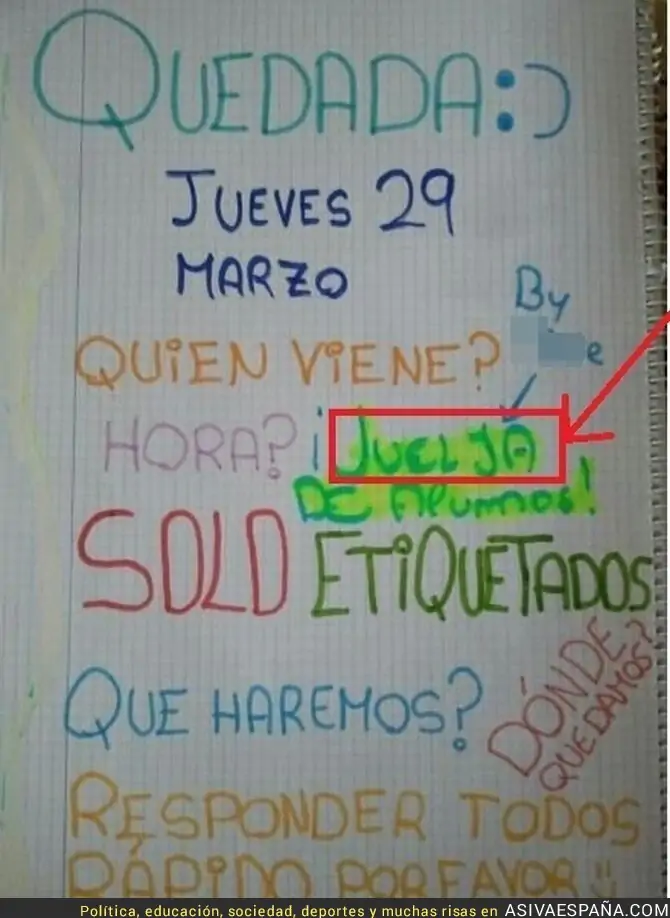 QUEDADA:)
JUEVES 29
MARZO
By
e
QUiEN ViENE?
HORA? ¡JUELJA
DE Alumnos!
SOLO ETiQUETADOS
QUE HAREMOS?
DÓNDE
QUEDAMOS?
RESPONDER TODOS
RÁPiDO POR FAVOR :)
Política, educación, sociedad, deportes y muchas risas en ASIVAESPAÑA.COM